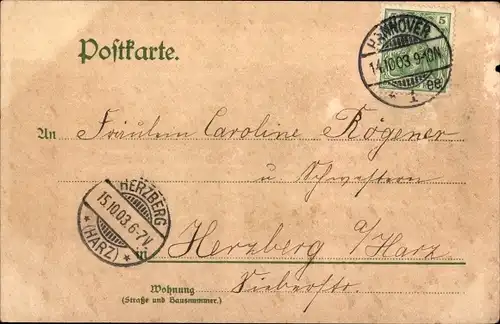 Postkarte.
5
HANNOVER
14.10.03.9-10N.
* 1
An Fräulein Caroline Rögener
u. Schwestern
HERZBERG
15.10.03.6-7V.
* (HARZ) *
in Herzberg a/Harz
Wohnung
(Straße und Hausnummer.)
Sieberstr.